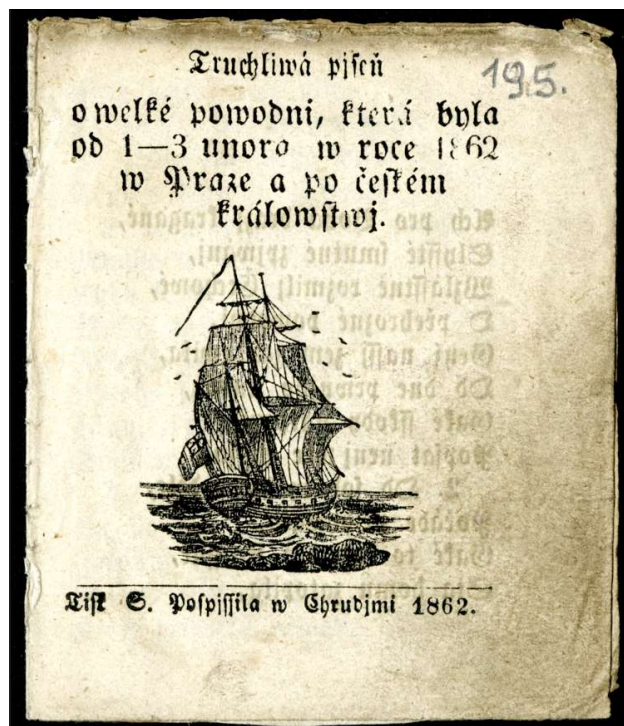 Truchliwá pjseň
195.
o welké powodni, která byla
od 1—3 unora w roce 1862
w Praze a po českém
králowstwj.
Tisk S. Pospjssila w Chrudjmi 1862.